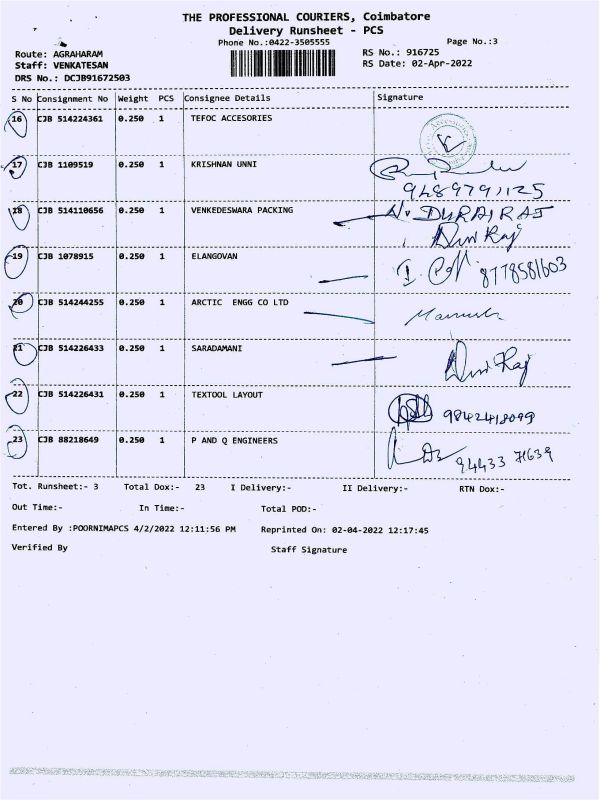 THE PROFESSIONAL COURIERS, Coimbatore
Delivery Runsheet - PCS
Phone No.:0422-3505555
Page No.:3
Route: AGRAHARAM
RS No.: 916725
Staff: VENKATESAN
RS Date: 02-Apr-2022
DRS No.: DCJB91672503
S No Consignment No Weight PCS Consignee Details Signature
16 CJB 514224361 0.250 1 TEFOC ACCESORIES
17 CJB 1109519 0.250 1 KRISHNAN UNNI
9489791125
18 CJB 514110656 0.250 1 VENKEDESWARA PACKING N. DURAI RAJ
Durai Raj
19 CJB 1078915 0.250 1 ELANGOVAN
8778581603
20 CJB 514244255 0.250 1 ARCTIC ENGG CO LTD
21 CJB 514226433 0.250 1 SARADAMANI Durai Raj
22 CJB 514226431 0.250 1 TEXTOOL LAYOUT 9842418099
23 CJB 88218649 0.250 1 P AND Q ENGINEERS
94433 71639
Tot. Runsheet:- 3 Total Dox:- 23 I Delivery:- II Delivery:- RTN Dox:-
Out Time:- In Time:- Total POD:-
Entered By :POORNIMAPCS 4/2/2022 12:11:56 PM Reprinted On: 02-04-2022 12:17:45
Verified By Staff Signature